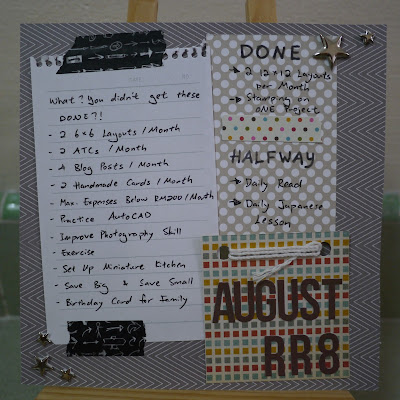 What? You didn't get these
DONE?!
- 2 6x6 Layouts / Month
- 2 ATCs / Month
- 4 Blog Posts / Month
- 2 Handmade Cards / Month
- Max. Expenses Below RM200/Month
- Practice AutoCAD
- Improve Photography Skill
- Exercise
- Set Up Miniature Kitchen
- Save Big & Save Small
- Birthday Card for Family
DONE
→ 2 12x12 Layouts
per Month
→ Stamping on
ONE Project
HALFWAY
→ Daily Read
→ Daily Japanese
Lesson
AUGUST
RR8